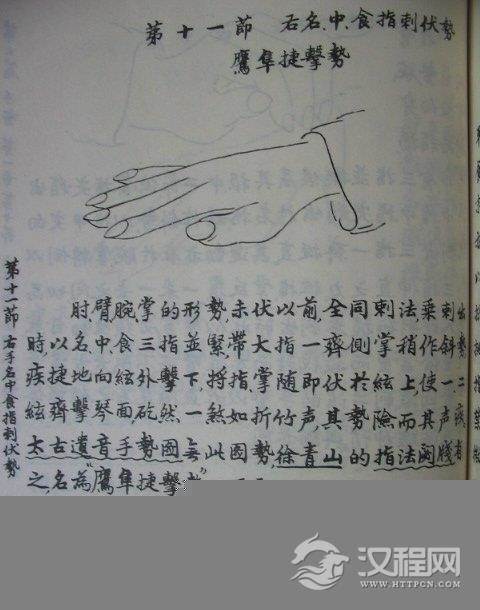 第十一節 右名、中、食指刺伏勢
鷹隼捷擊勢
肘、臂、腕、掌的形勢,未伏以前,全同刺法,乘刺出
時,以名、中、食三指並緊,帶大指一齊側掌稍作斜勢
疾捷地向絃外擊下,將指、掌隨即伏於絃上,使一、二
絃齊擊琴面,矻然一煞如折竹声,其勢險而其声疾
太古遺音手勢圖無此圖勢,徐青山的指法闕牋有
之,名為“鷹隼捷擊
第十一節 右手名中食指刺伏勢
汉程网
WWW.HTTPCN.COM